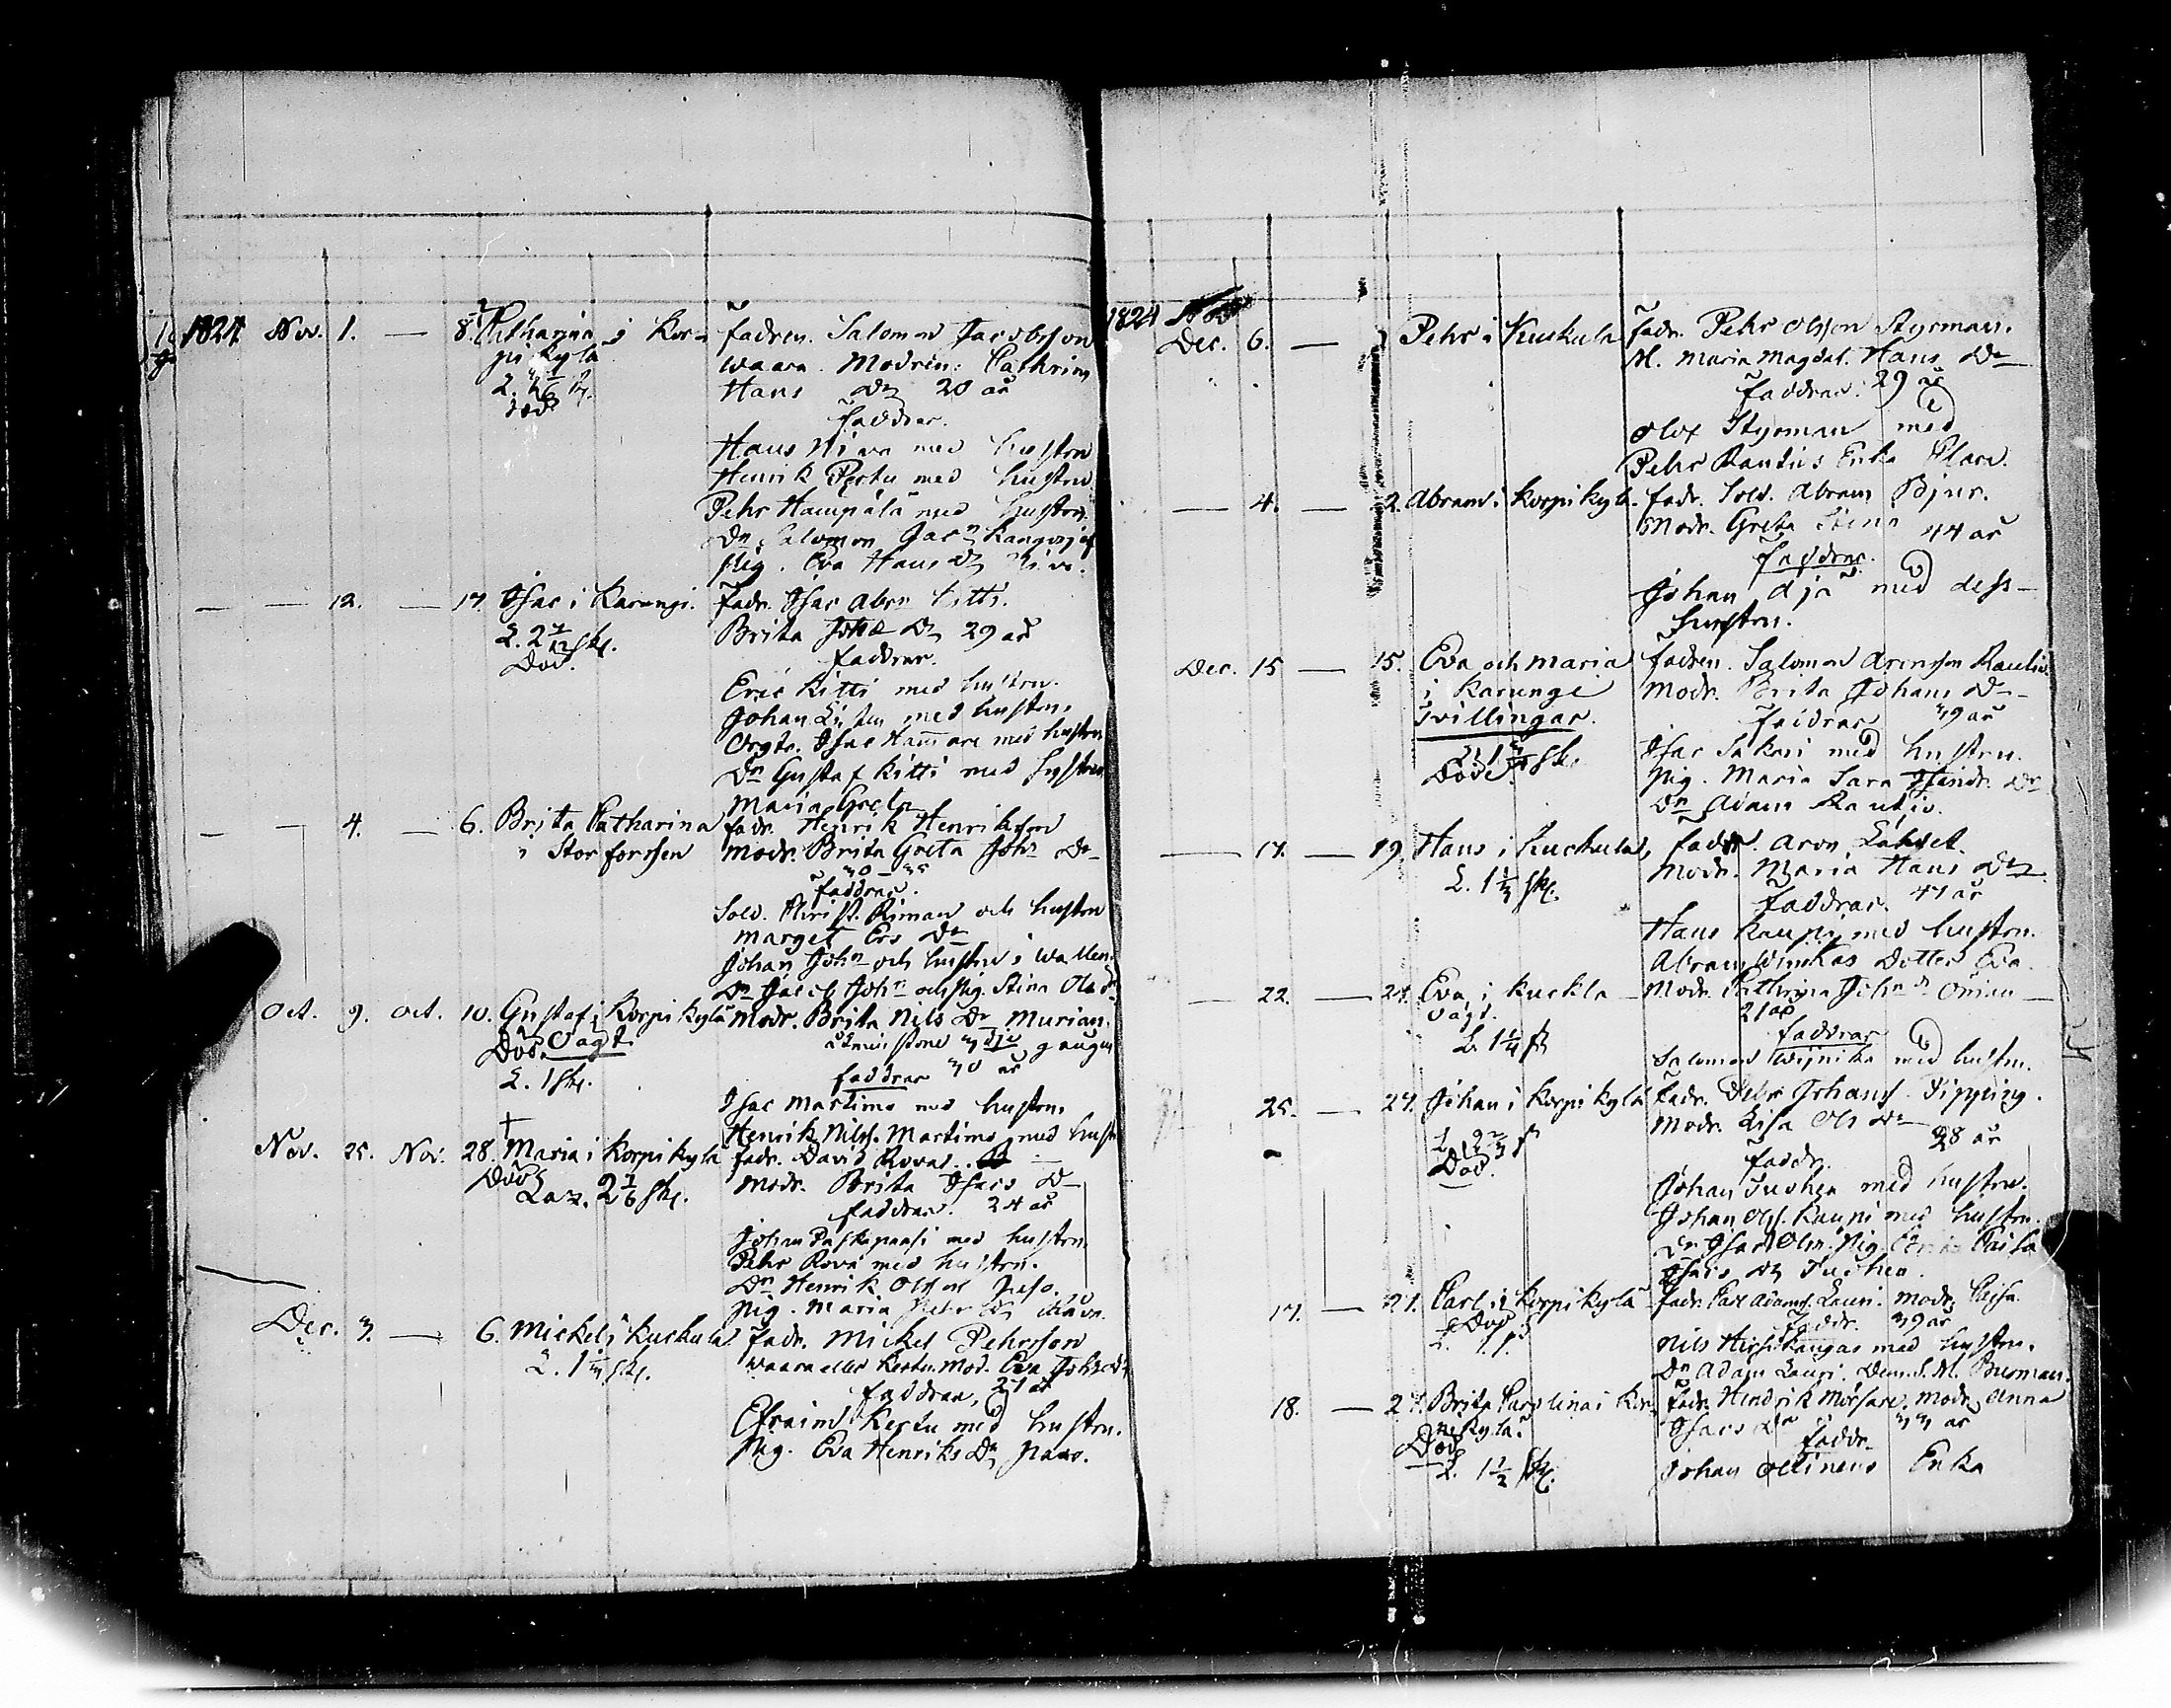 1824 Nov. 1. — 8. Catharina i Kor-
pi kyla
död
fadren. Salomon Jacobsson
waara. Modren: Cathrina
Hans Dr 20 år
faddrar.
Hans Niva med hustru
Henrik Pertu med hustru
Pehr Hampälä med hustru.
Dn Salomon Jacn
Pig. Eva Hans Dr Niva.
— — 12. — 17. Isac i Karungi.
L. 2 7/12 sk.
Död.
fadr. Isac Abrn Kitti.
Brita Joha Dr 29 år
faddrar.
Eric Kitti med hustru.
Johan med hustru.
Isac Ham̄are med hustru
Dn Gustaf Kitti med Systren
Maria Greta
— — 4. — 6. Brita Catharina
i Storforssen
fadr. Henrik Henriksson
modr. Brita Greta Johs Dr
30-35
faddrar.
Sold. Christ. Riman och hustru
Marget Ers Dr
Johan John och hustru i Wallen.
Dn Jacob John och Pig. Stina Ols dr
Oct. 9. Oct. 10. Gustaf i Korpikylä
Död. Oägt
L. 1 sk.
Modr. Brita Nils Dr Murian.
3dje gången
faddrar 30 år
Isac Martimo med hustru.
Henrik Nilss. Martimo med hustr
Nov. 25. Nov. 28. Maria i Korpikyla
Död
Laz. 2 1/6 sk.
fadr. David Rova.
Modr. Brita Isacs Dr
faddrar. 24 år
Johan Paskapaasi med hustru.
Pehr Rova med hustru.
Dn Henrik Olsson Juso.
Pig. Maria Pehrs Dr
Dec. 3. — 6. Mickel i Kuckula
L. 1 sk.
fadr. Mickel Pehrsson
waara eller Kertu. Mod. Eva Johs dr
faddrar, 27 år
Efraim Kertu med hustru.
Pig. Eva Henriks Dr Paao.
1824
Dec. 6. — Pehr i Kuckula
fadr. Pehr Olsson Styrman.
M. Maria Magdal. Hans Dr
faddrar. 29 år
Olof Styrman med
Pehr Rautios Enka Clara.
— 4. — 12. Abram i Korpikylä.
fadr. Sold. Abram Bjur.
Modr. Greta Stina 44 år
faddrar.
Johan Oja med dess
hustru.
Dec. 15 — 15. Eva och Maria
i Karungi
tvillingar.
Död
fadren. Salomon Aronsson Rautio.
Modr. Brita Johans Dr
faddrar 39 år
Isac Sakari med hustru.
Pig. Maria Sara Isacs Dr
Dn Adam Rautio.
— 17. — 19. Hans i Kuckula,
L. 1 1/3 sk.
fadr. Aron Lahdet.
Modr. Maria Hans Dr
faddrar. 47 år
Hans Kaupi med hustru.
Abram Winckas Dotter Eva.
— 22. — 27. Eva i Kuckla
Oägt.
L. 1 1/4 sk
Modr. Cathrina Johs dr Öman
21 år
faddrar
Salomon Wijnika med hustru.
25. — 27. Johan i Korpikylä
L. 2 2/3 sk
Död.
fadr. Pehr Johanss. Tipping.
Modr. Lisa Ols Dr
28 år
faddr.
Johan Tuohea med hustru.
Johan Olss. Kaupi med hustru.
Dn Isac Olss. Pig. Caisa
Isacs Dr Tuohea.
17. — 27. Carl i Korpikylä
Död
fadr. Carl Adamss. Lauri. Modr. Caisa
faddr. 39 år
Nils Hirsikangas med hustru.
Dn Adam Lauri. Dem.s. M. Burman.
18. — 27. Brita Carolina i Kor-
pikylä.
Död
L. 1 1/2 sk.
fadr. Hendrik Mörsare. Modr. Anna
Isacs Dr 33 år
faddr.
Johan Ollinens Enka